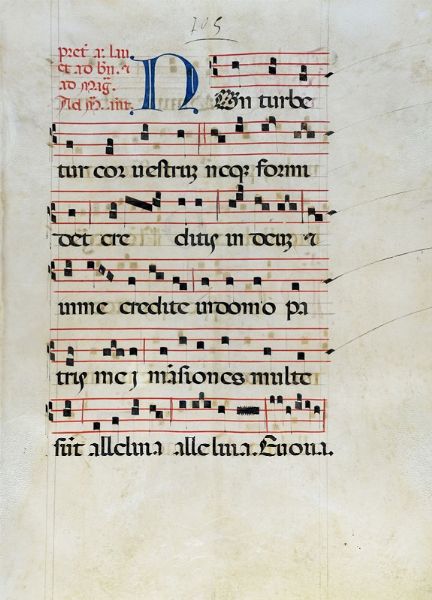 105
pret̄ a. lau
et ad bn̄. ⁊
ad mag̃.
N On turbe
tur cor uestruȝ neqȝ formi
det cre ditis in deuȝ ⁊
in me credite in domo pa
tris me i mãsiones multe
sūt alleluia alleluia. Euoua.